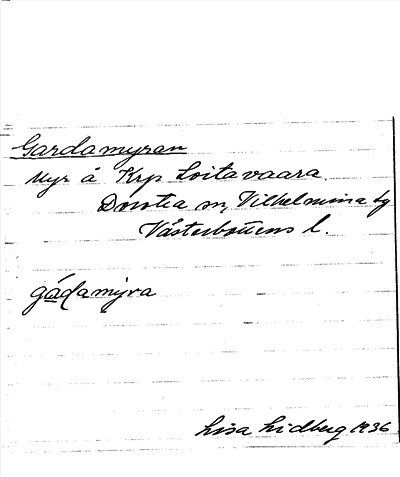 Gardamyran
Myr å Krp Loitavaara
Dorotea sn, Vilhelmina tg
Västerbottens l.
gådamyra
Lisa Lidberg 1936